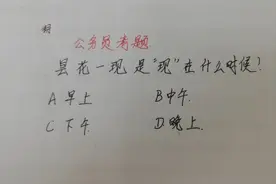 公务员考题
昙花一现是“现”在什么时候?
A 早上 B 中午.
C 下午. D. 晚上.